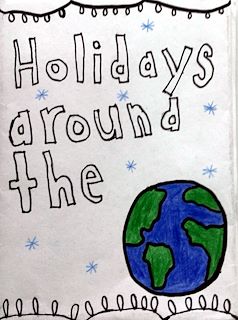 Holidays
around
the